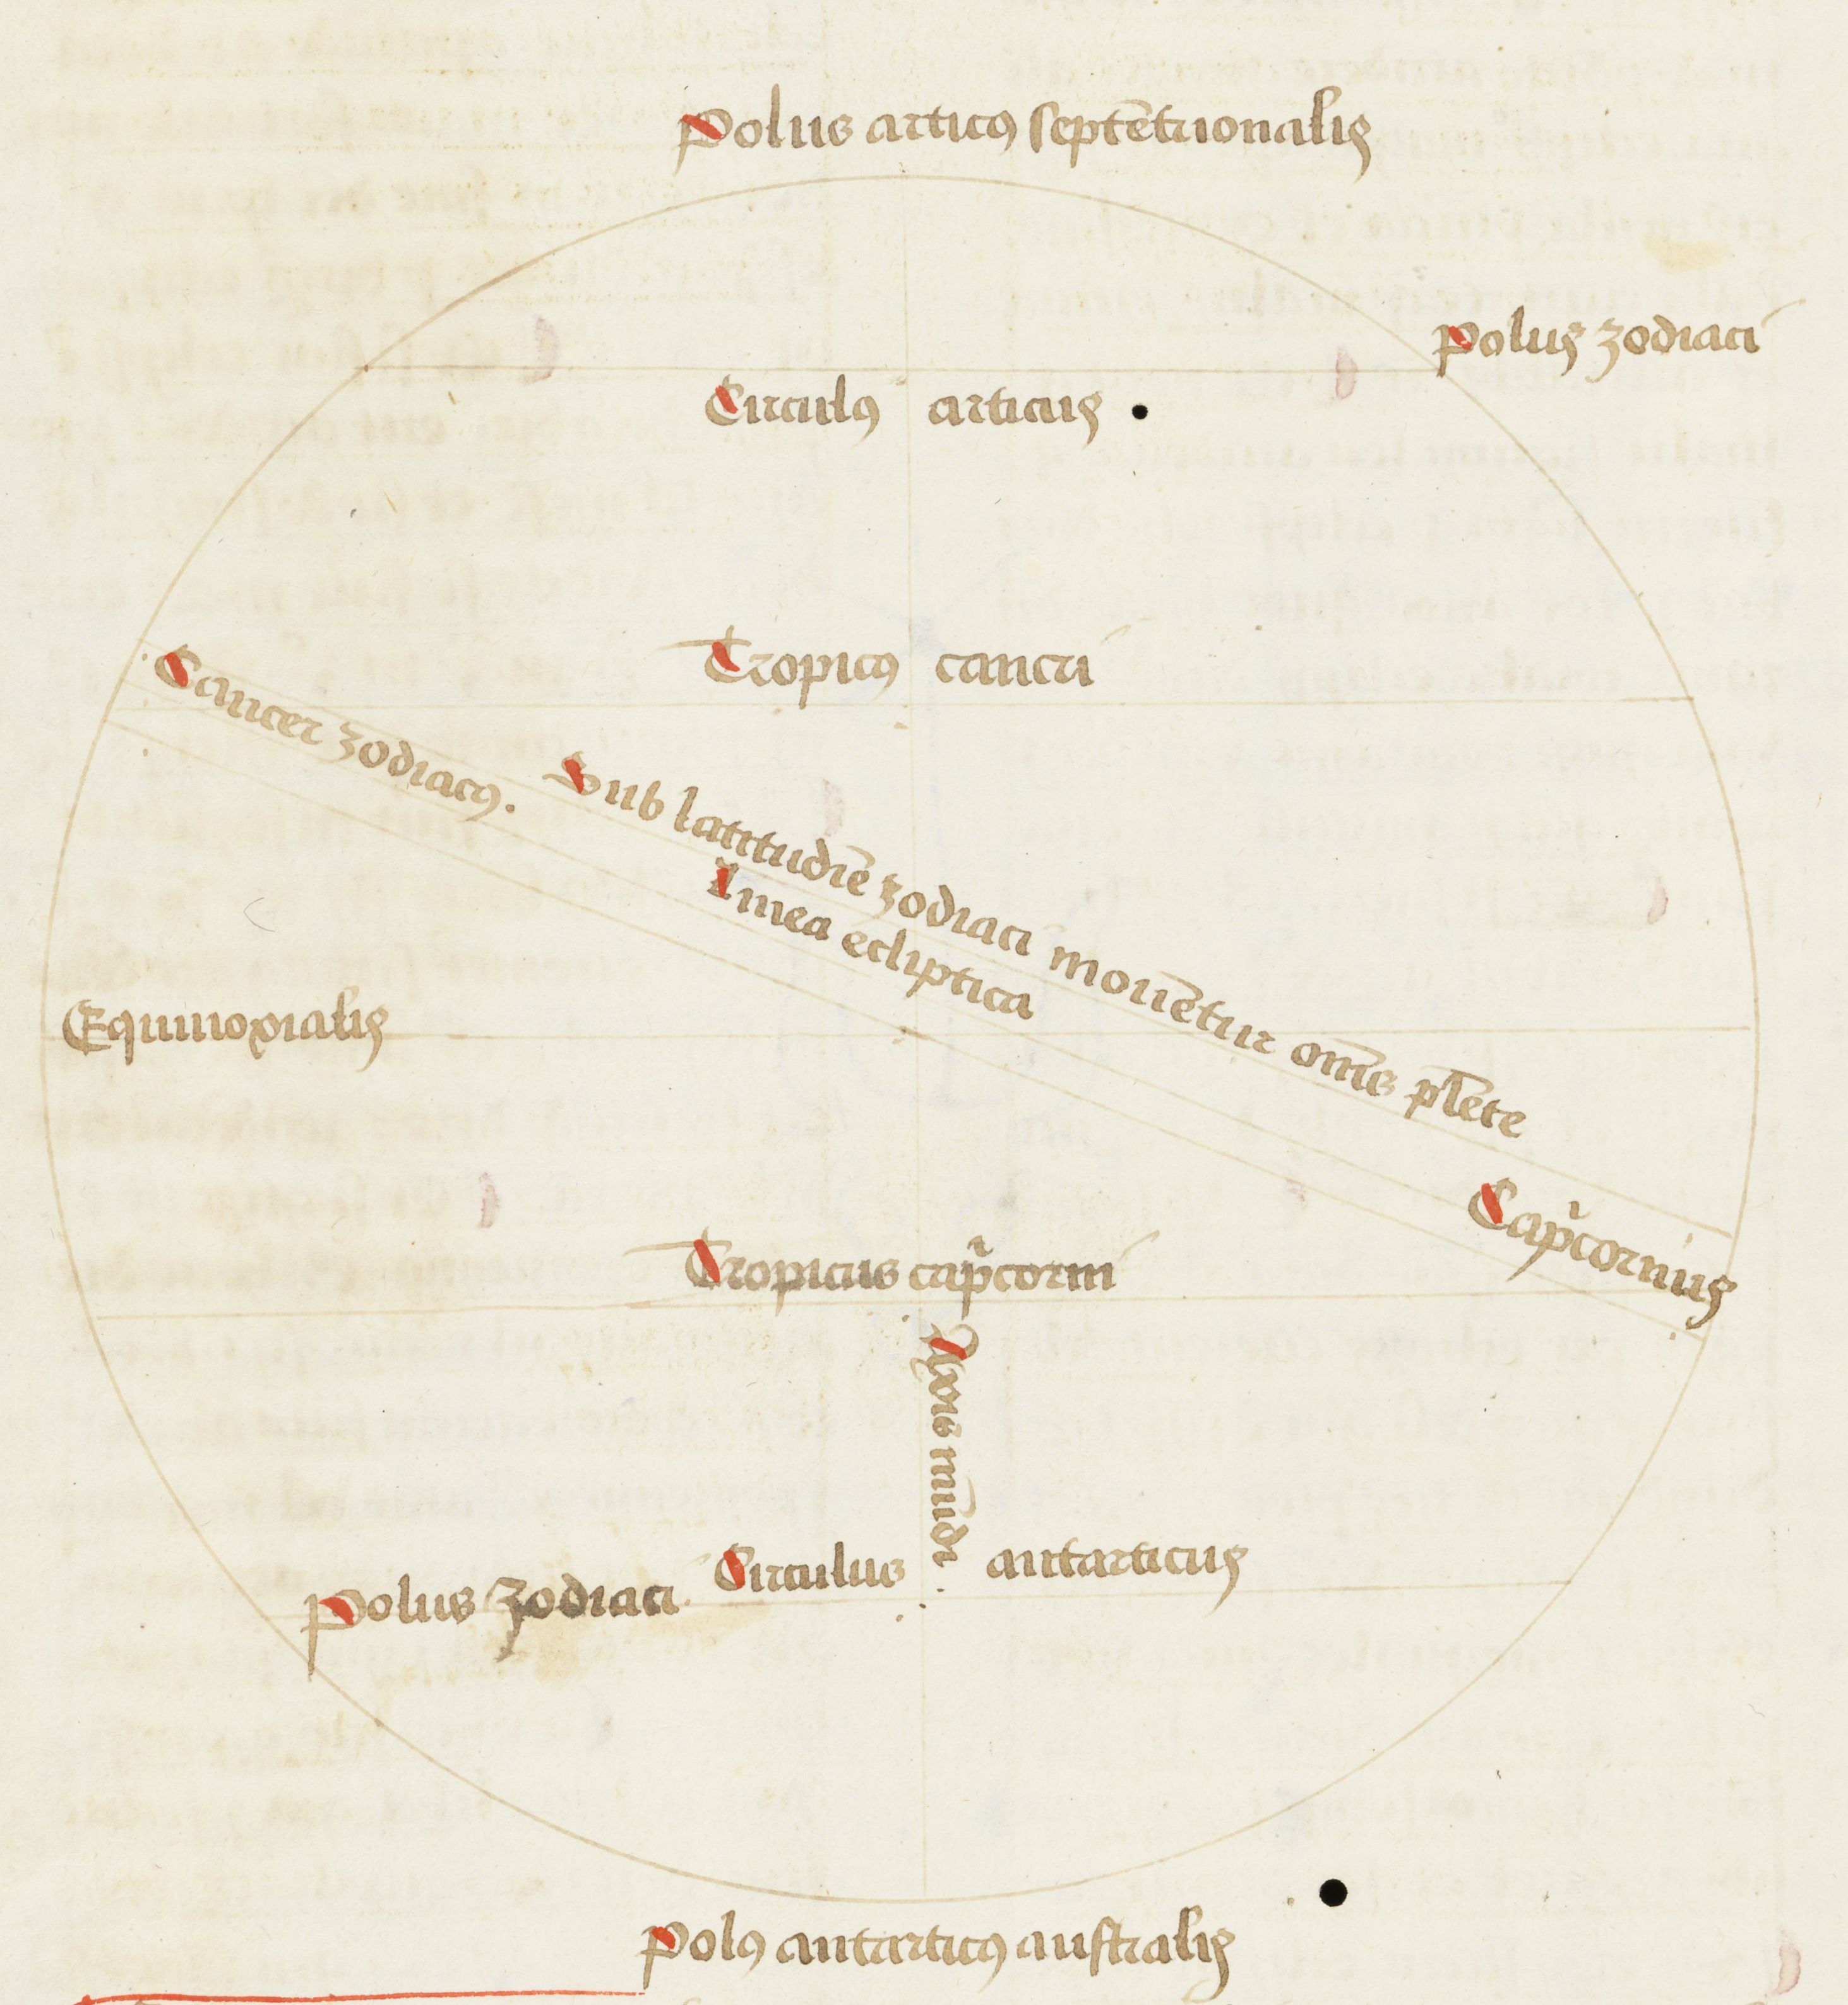 Polus articꝰ septēt​rionalis
polus zodiaci
Circulꝰ articus
Tropicꝰ cancri
Cancer zodiacꝰ.
Sub latitudiē zodiaci mouētur om̄es pl̄ete
linea ecliptica
Equinoxialis
Capͥcornius
Tropicus capͥcorni
Axis mūdi
Circulus antarticus
Polus zodiaci
polꝰ antarticꝰ australis